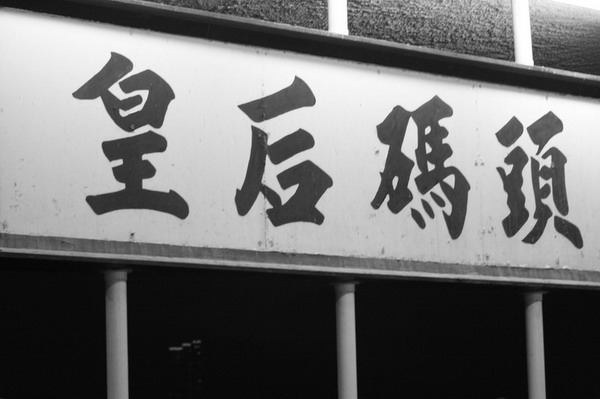 皇后碼頭